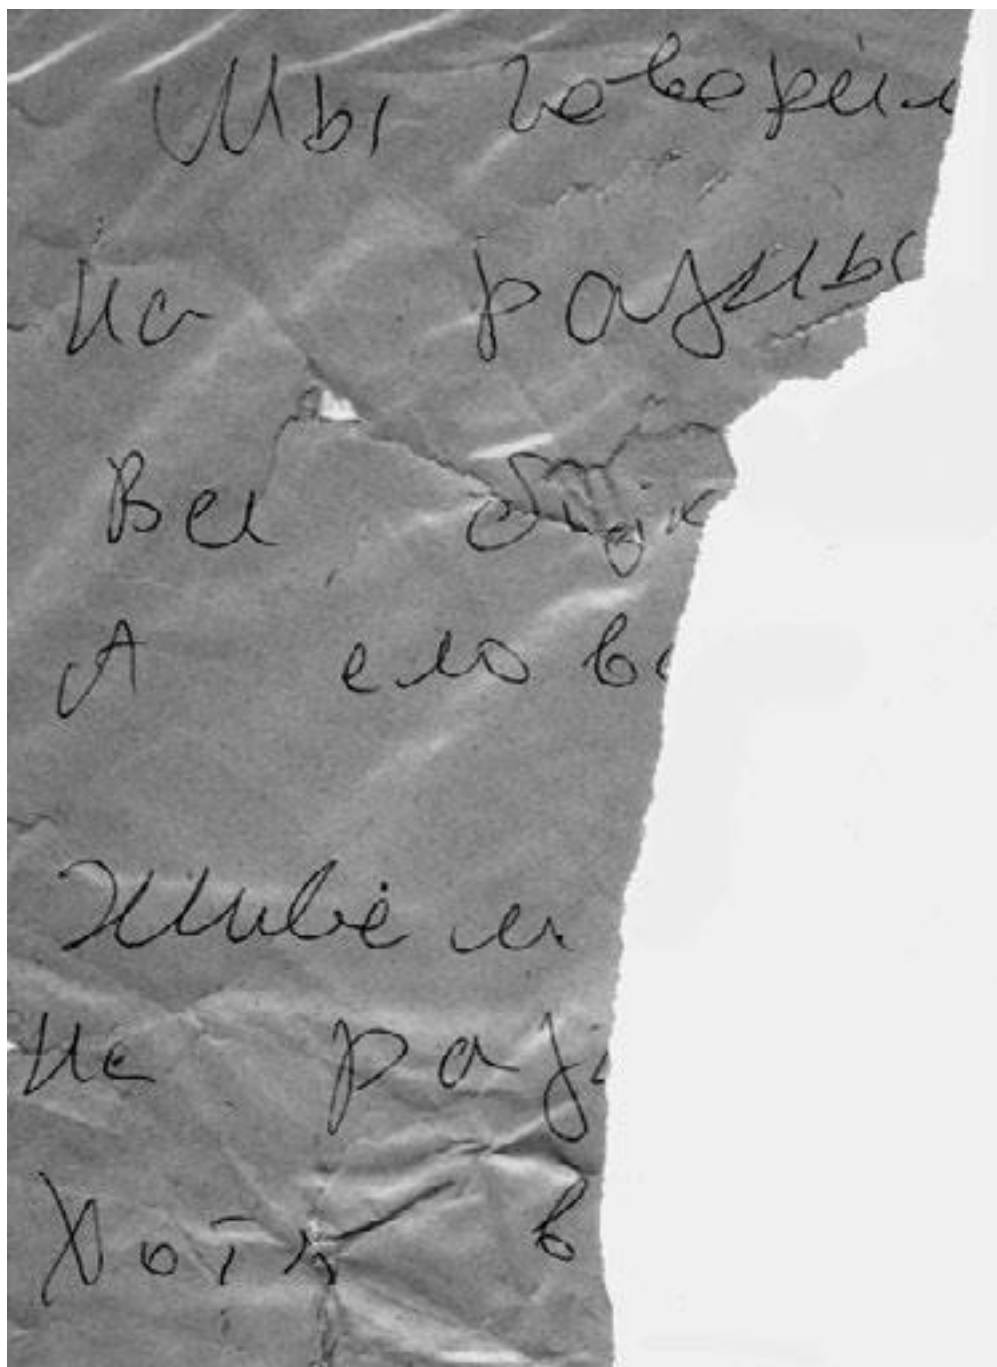 Мы говорил
на разны
Все
А слово
Живём
не раз
Хотя в